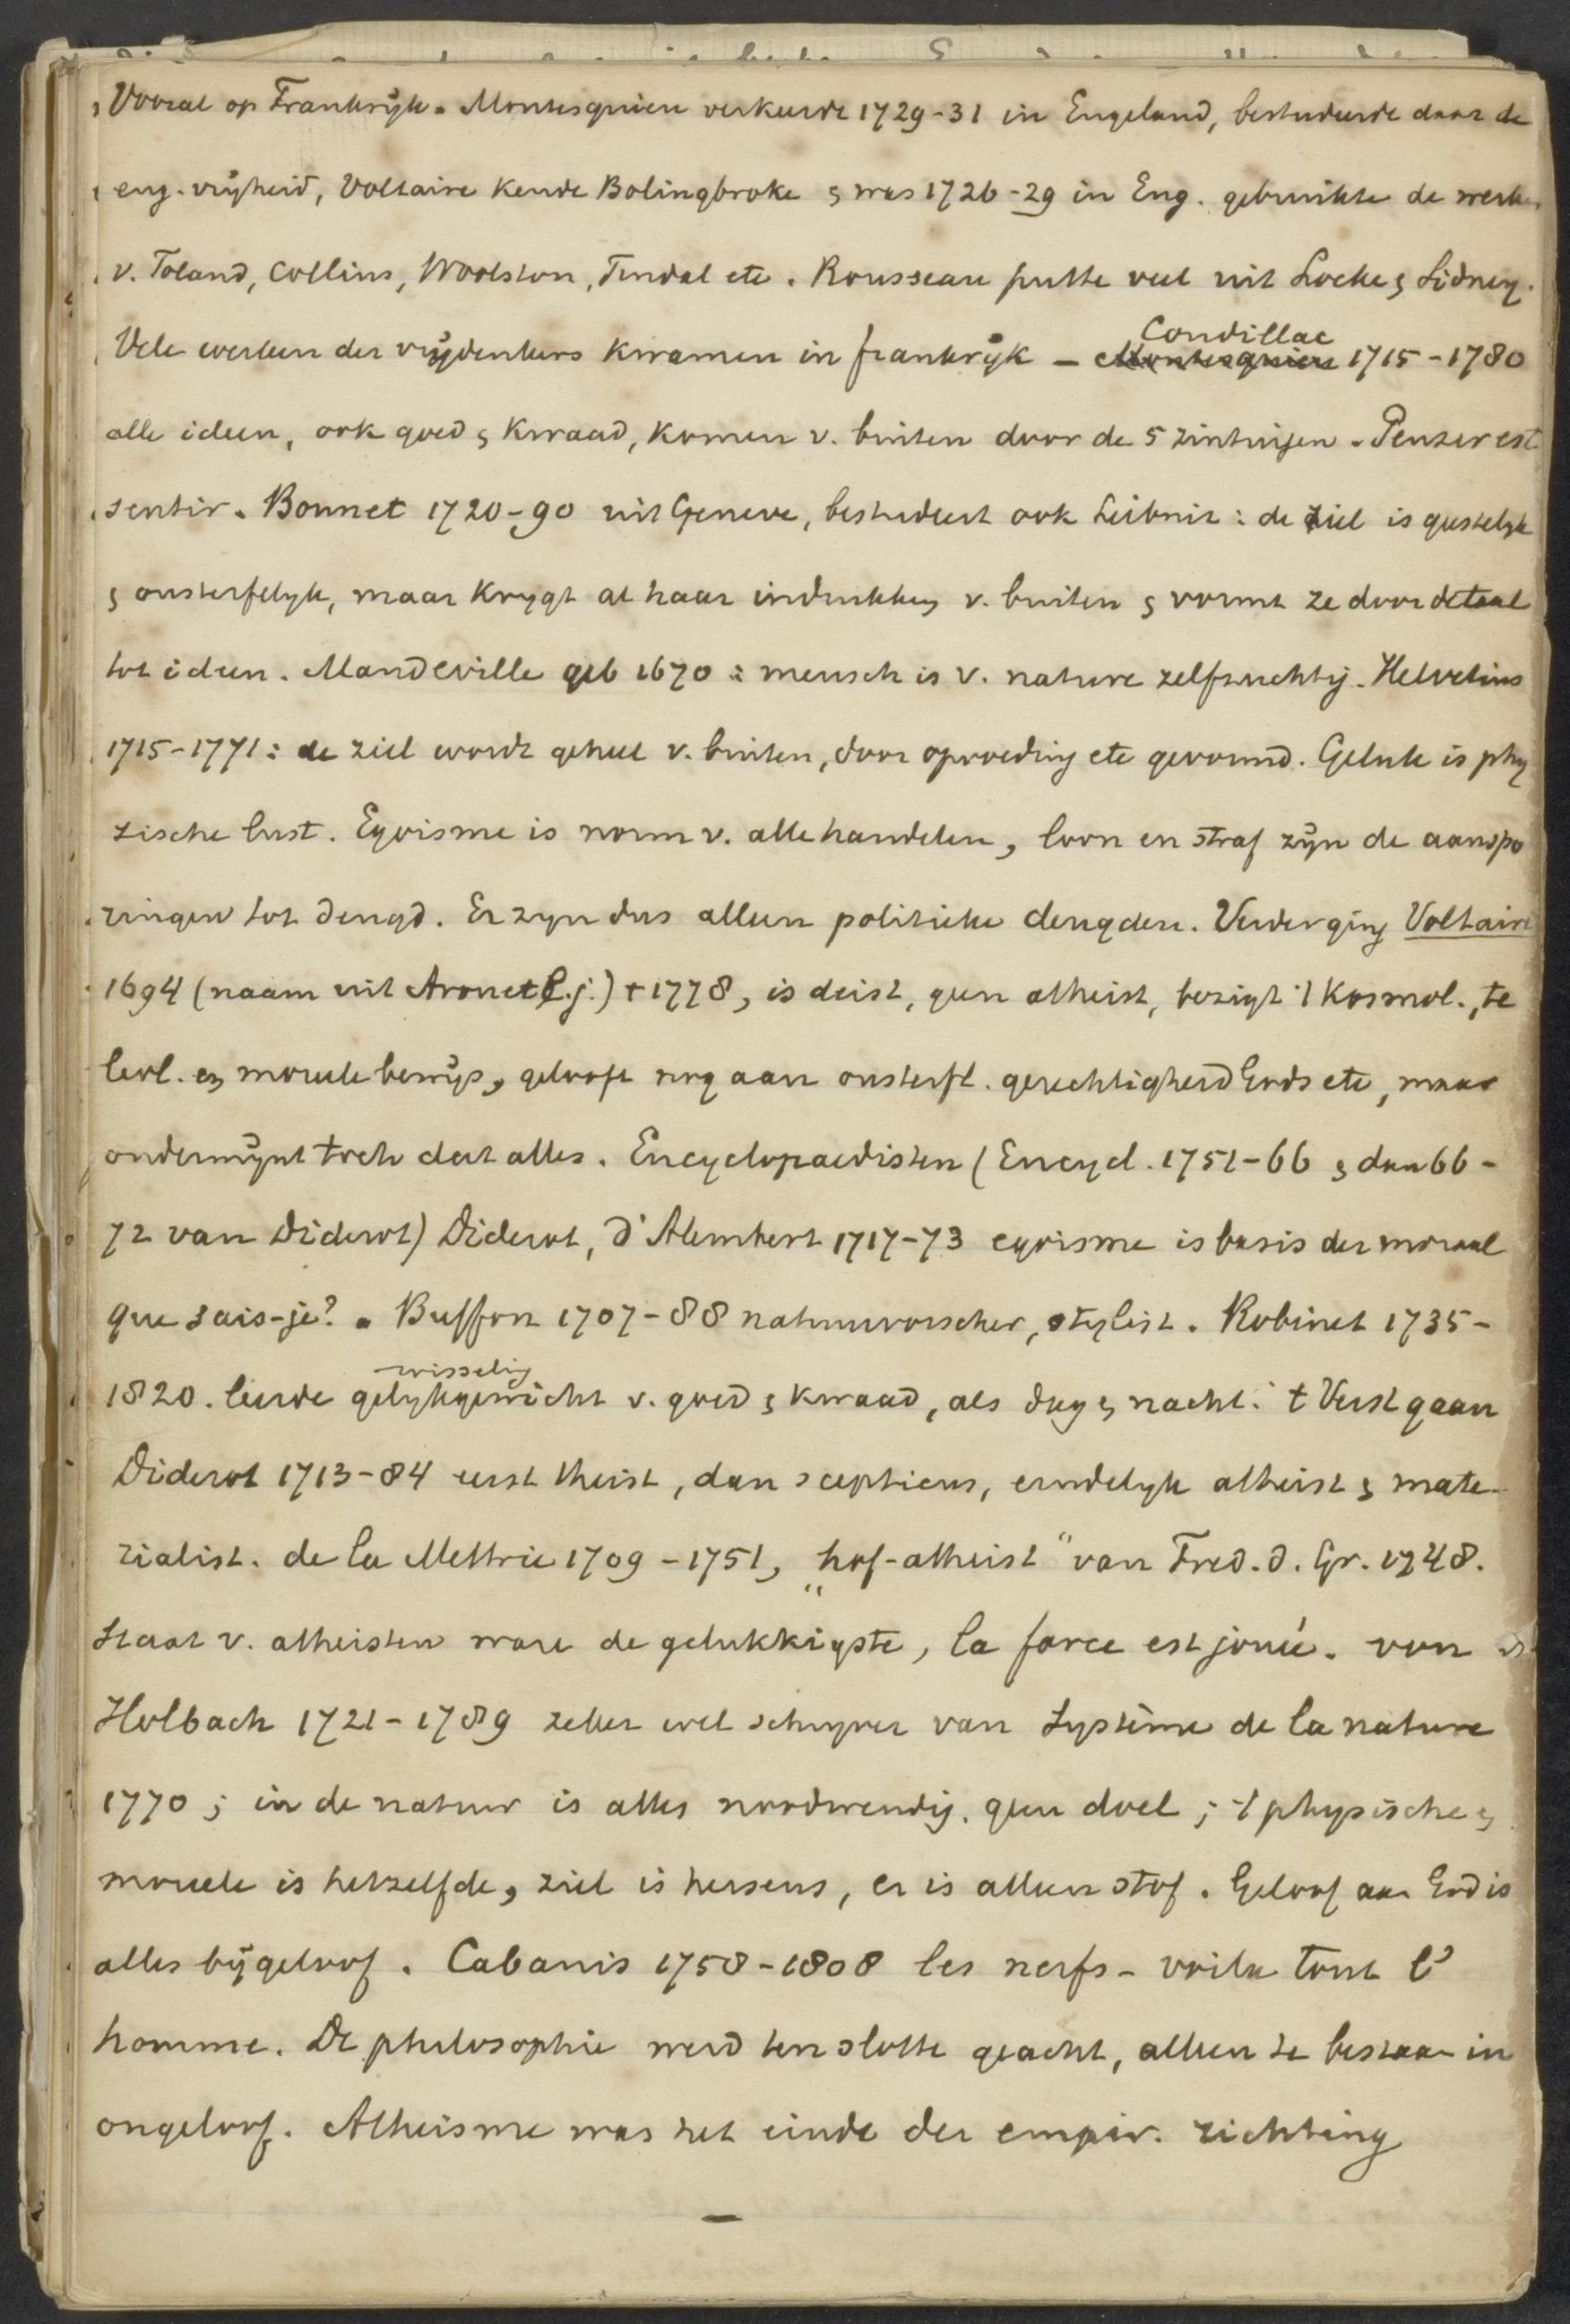 Vooral op Frankrijk. Montesquieu verkeerde 1729-31 in Engeland, bestudeerde daar de
eng. vrijheid, Voltaire kende Bolingbroke & was 1726-29 in Eng. gebruikte de werken
v. Toland, Collins, Woolston, Tindal etc. Rousseau putte veel uit Locke & Sidney.
Condillac
Vele werken der vrijdenkers kwamen in frankrijk - Montesquieu 1715-1780
alle ideen, ook goed & kwaad, komen v. buiten door de 5 zintuigen. Penser est
sentir. Bonnet 1720-90 uit Geneve, bestudeert ook Leibnitz: de ziel is geestelyk
& onsterfelyk, maar krygt al haar indrukken v. buiten & vormt ze door de taal
tot ideen. Mandeville geb 1670: mensch is v. nature zelfzuchtig. Helvetius
1715-1771: de ziel wordt geheel v. buiten, door opvoeding etc gevormd. Geluk is phy
zische lust. Egoisme is norm v. alle handelen, loon en straf zijn de aanspo
ringen tot deugd. Er zyn dus alleen politieke deugden. Verder ging Voltaire
1694 (naam uit Arouet l.j.) + 1778, is deist, geen atheist, bezigt 't kosmol., te
leol. en moreele bewijs, gelooft nog aan onsterfl. gerechtigheid Gods etc, maar
ondermijnt toch dat alles. Encyclopaedisten (Encycl. 1751-66 & dan 66-
72 van Diderot) Diderot, d'Alembert 1717-73 egoisme is basis der moraal
que sais-je?. Buffon 1707-88 natuurvorscher, stylist. Robinet 1735-
wisselig
1820. leerde gelykgewicht v. goed & kwaad, als dag & nacht. 't Verst gaan
Diderot 1713-84 eerst theist, dan scepticus, eindelyk atheist & mate-
rialist. de la Mettrie 1709-1751, "hof-atheist" van Fred. d. Gr. 1748.
Staat v. atheisten ware de gelukkigste, la farce est jouée. von
Holbach 1721-1789 zeker wel schryver van Système de la nature
1770; in de natuur is alles noodwendig, geen doel; 't physische &
moreele is hetzelfde, ziel is hersens, er is alleen stof. Geloof aan God is
alles bijgeloof. Cabanis 1758-1808 les nerfs - voila tout l'
homme. De philosophie werd ten slotte geacht, alleen te bestaan in
ongeloof. Atheisme was het einde der empir. richting